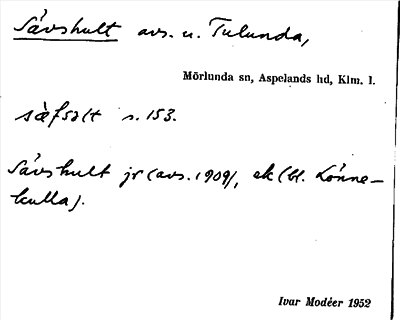 Sävshult avs. u. Tulunda,
Mörlunda sn, Aspelands hd, Klm. l.
sàfsalt s. 153.
Sävshult jr (avs. 1909), ek (bl. Lönne-
kulla).
Ivar Modéer 1952